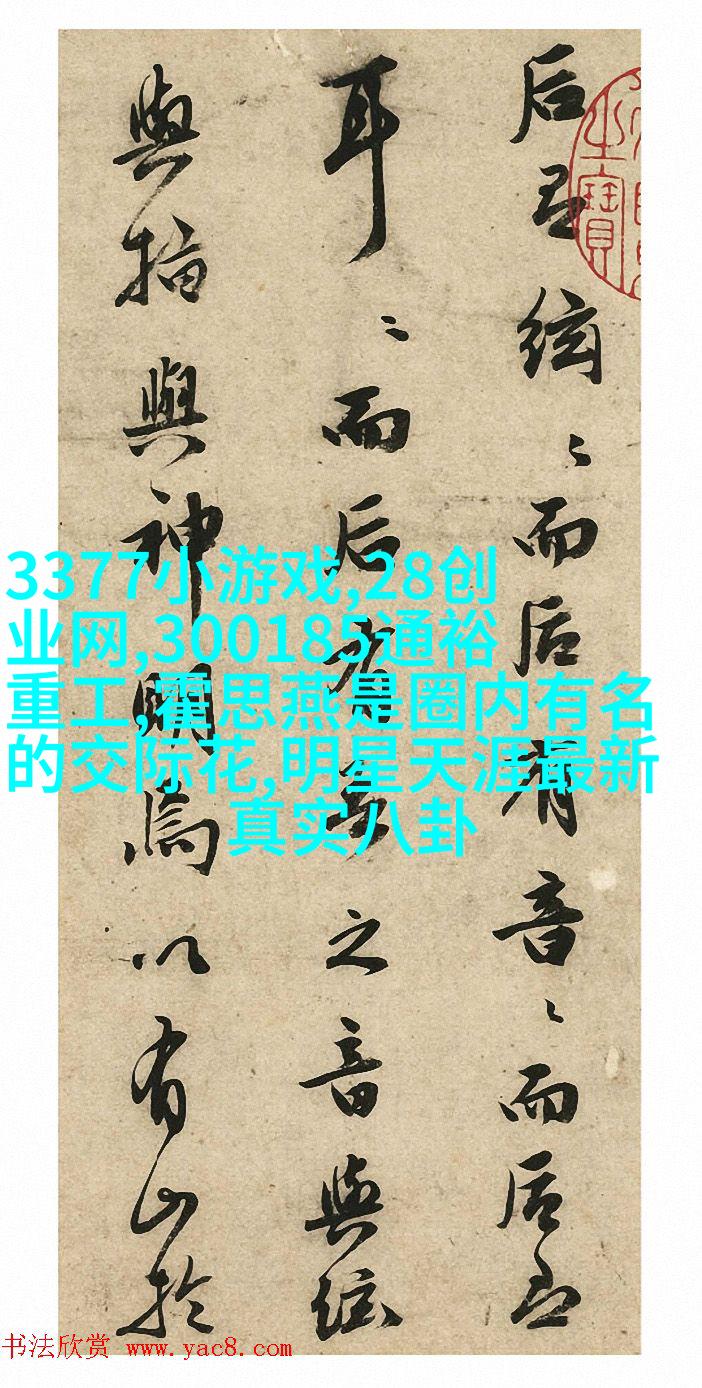 后絃〻而后有音〻而后
耳〻而后有之音與絃
與指與神明焉以有山於
之寶
3377小游戏,28创
业网,300185通裕
重工,霍思燕是圈内有名
的交际花,明星天涯最新
真实八卦
书法欣赏 www.yac8.com